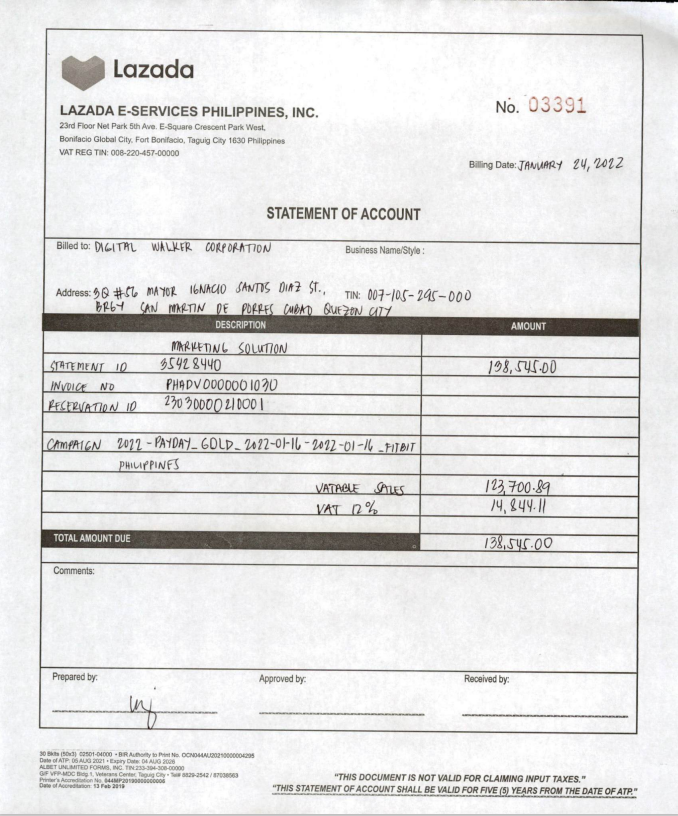 Lazada
LAZADA E-SERVICES PHILIPPINES, INC.
No. 03391
23rd Floor Net Park 5th Ave. E-Square Crescent Park West,
Bonifacio Global City, Fort Bonifacio, Taguig City 1630 Philippines
VAT REG TIN: 008-220-457-00000
Billing Date: JANUARY 24, 2022
STATEMENT OF ACCOUNT
Billed to: DIGITAL WALKER CORPORATION Business Name/Style :
Address: 3Q #56 MAYOR IGNACIO SANTOS DIAZ ST., TIN: 007-105-295-000
BRGY SAN MARTIN DE PORRES CUBAO QUEZON CITY
DESCRIPTION AMOUNT
MARKETING SOLUTION
STATEMENT ID 35428440 138,545.00
INVOICE NO PHADV0000001030
RESERVATION ID 23030000210001
CAMPAIGN 2022 - PAYDAY_GOLD_2022-01-16-2022-01-16_FITBIT
PHILIPPINES
VATABLE SALES 123,700.89
VAT 12% 14,844.11
TOTAL AMOUNT DUE 138,545.00
Comments:
Prepared by: Approved by: Received by:
30 Bklts (50x3) 02501-04000 • BIR Authority to Print No. OCN044AU20210000004295
Date of ATP: 05 AUG 2021 • Expiry Date: 04 AUG 2026
ALBET UNLIMITED FORMS, INC. TIN:233-394-308-00000
G/F VFP-MDC Bldg.1, Veterans Center, Taguig City • Tel# 8829-2542 / 87038563
Printer's Accreditation No. 044MP20190000000006
Date of Accreditation: 13 Feb 2019
"THIS DOCUMENT IS NOT VALID FOR CLAIMING INPUT TAXES."
"THIS STATEMENT OF ACCOUNT SHALL BE VALID FOR FIVE (5) YEARS FROM THE DATE OF ATP."